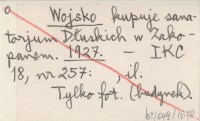 Wojsko kupuje sana-
torjum Dłuskich w Zako-
panem. 1927. - IKC
18, nr 257: , il.
Tylko fot. (budynek).